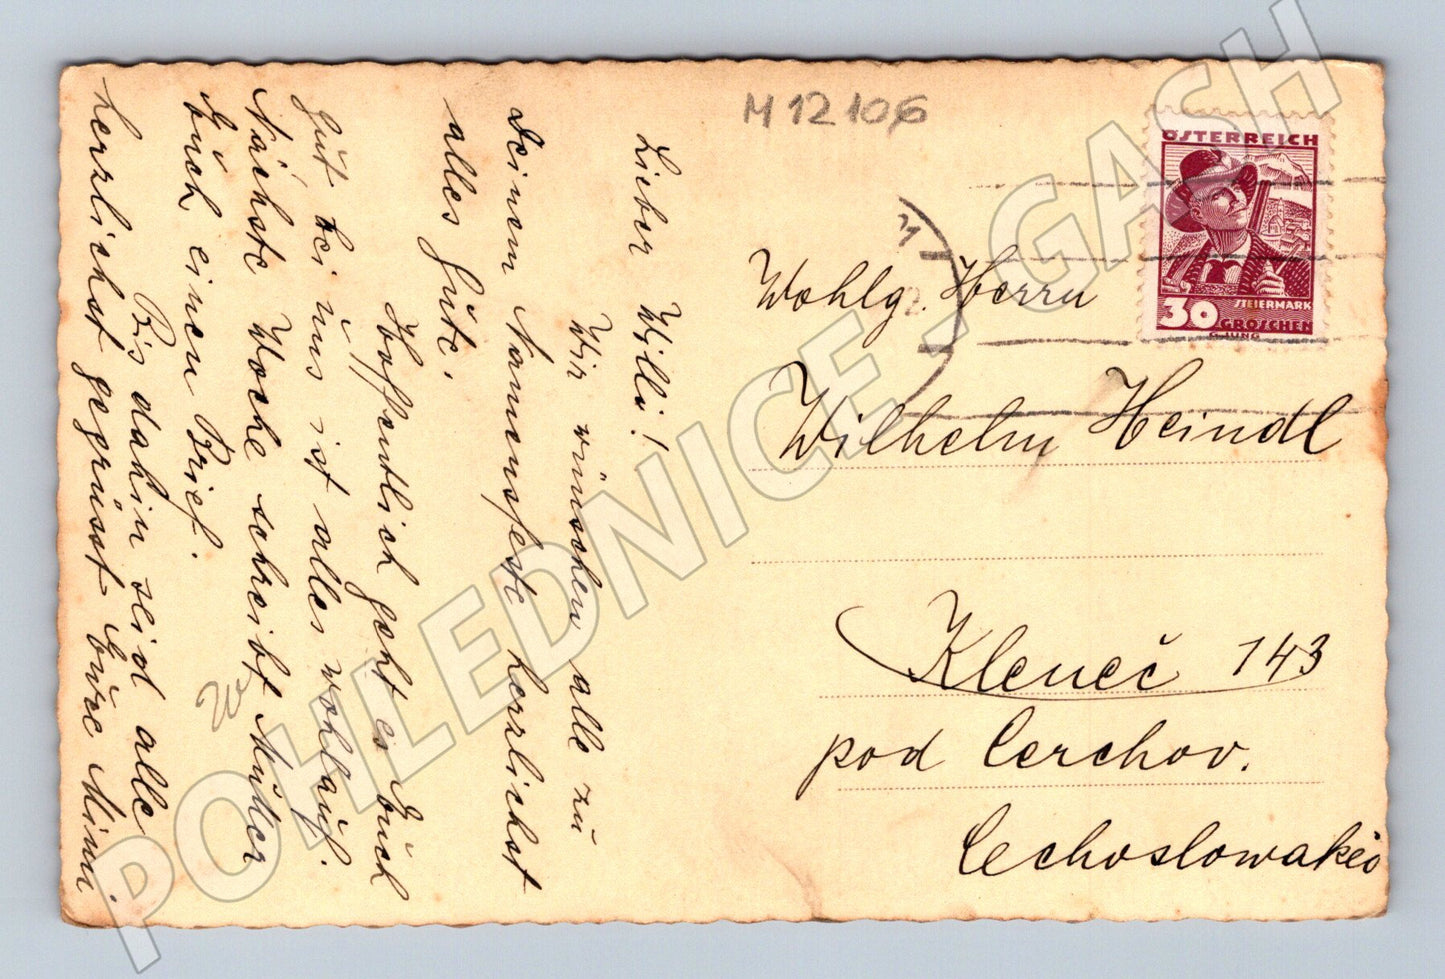 M 12 106
Lieber Willi!
Wir wünschen alle zu
Deinem Namensfeste herzlichst
alles Gute.
Hoffentlich geht es Euch
gut bei uns ist alles wohlauf.
Nächste Woche schreibt Mutter
Euch einen Brief.
Bis dahin seid alle
herzlichst gegrüsst Eure Minni.
ÖSTERREICH
30
STEIERMARK
GROSCHEN
G. JUNG
Wohlg. Herrn
Wilhelm Heindl
Kleneč 143
pod Cerchov.
Cechoslowakei
POHLEDNICE / GASH